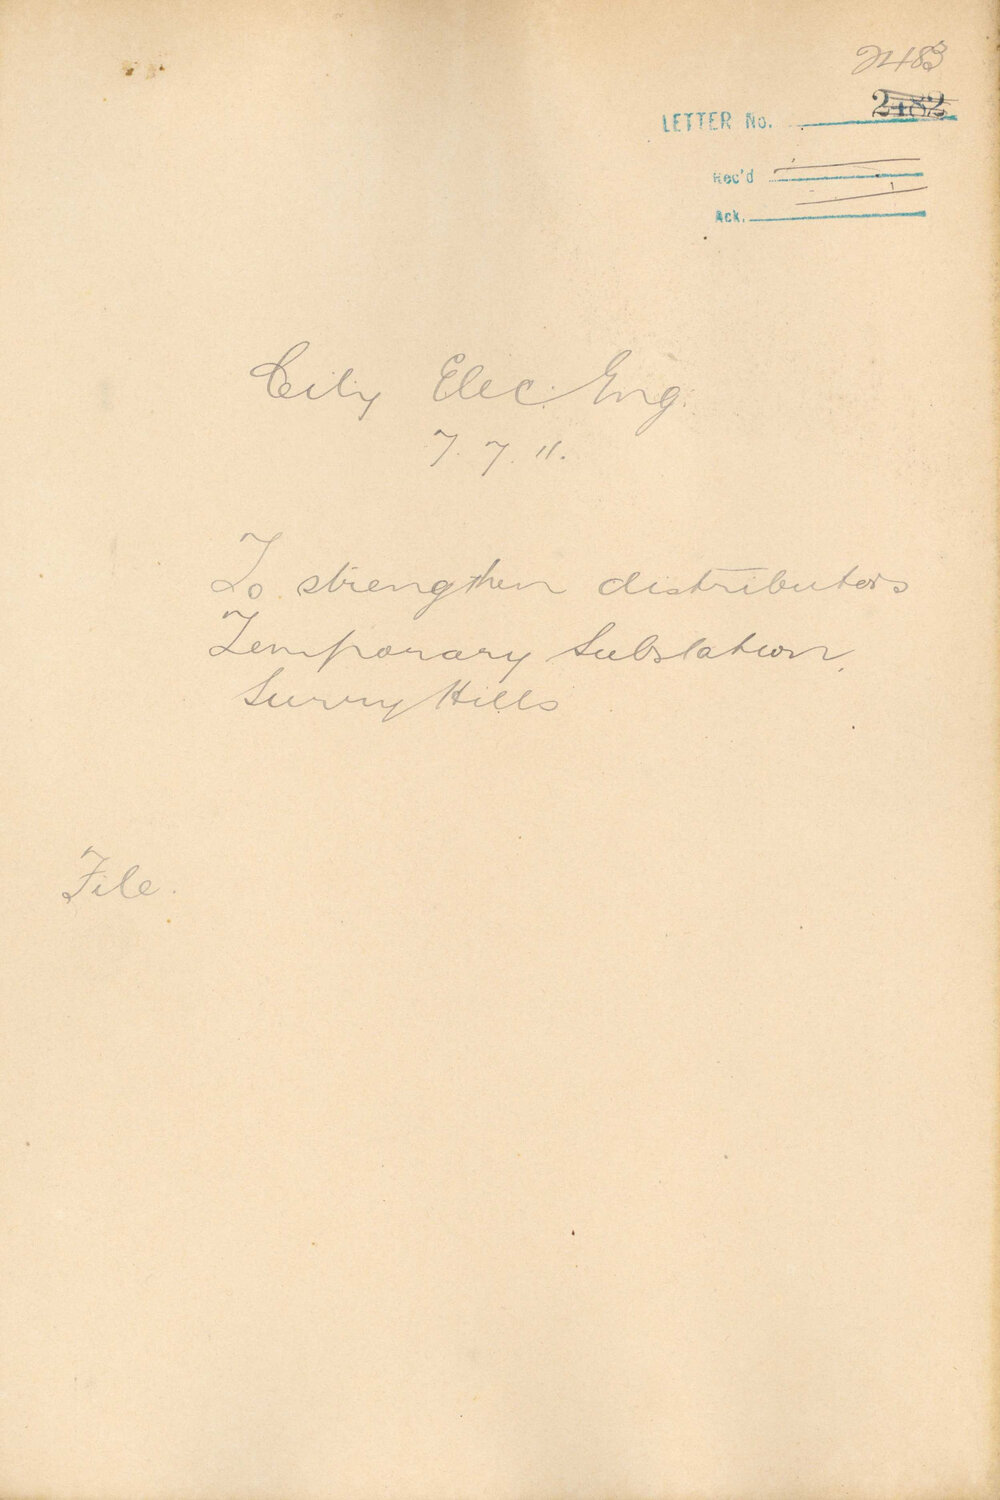 2483
LETTER No. 2482
Rec'd
Ack.
City Elec. Eng.
7. 7. 11.
To strengthen distributors
Temporary Substation,
Surry Hills
File.